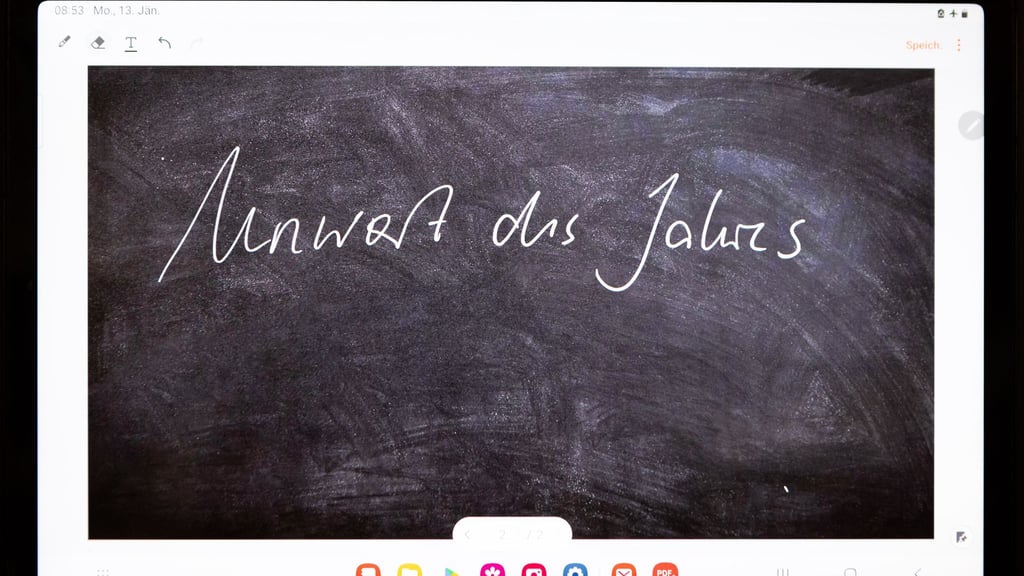 08:53 Mo., 13. Jan.
T
Speich.
Unwort des Jahres
2 / 2
PDF